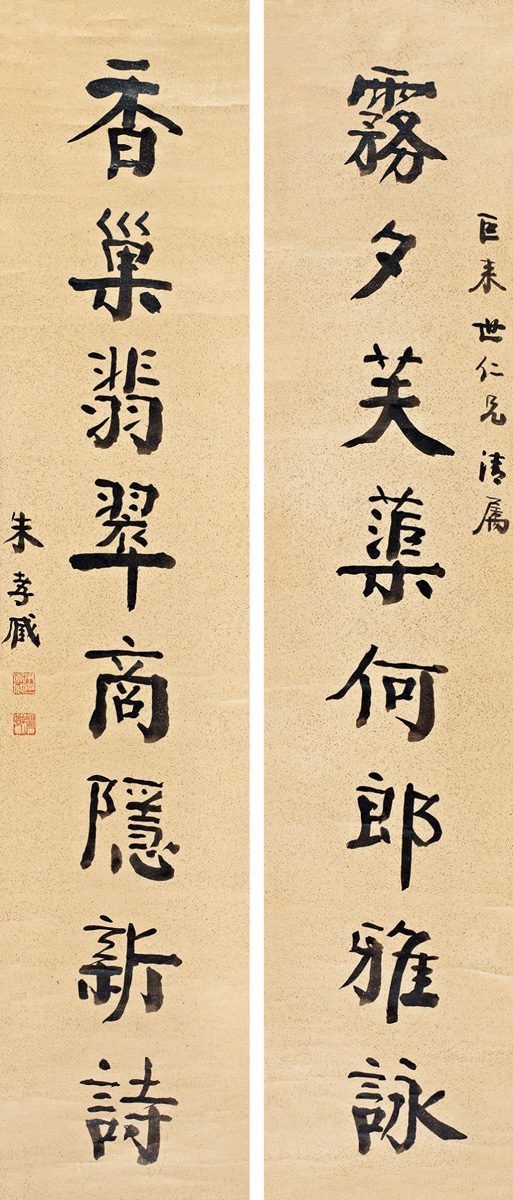 巨来世仁兄清属
霧夕芙蕖何郎雅詠
香巢翡翠商隱新詩
朱孝臧